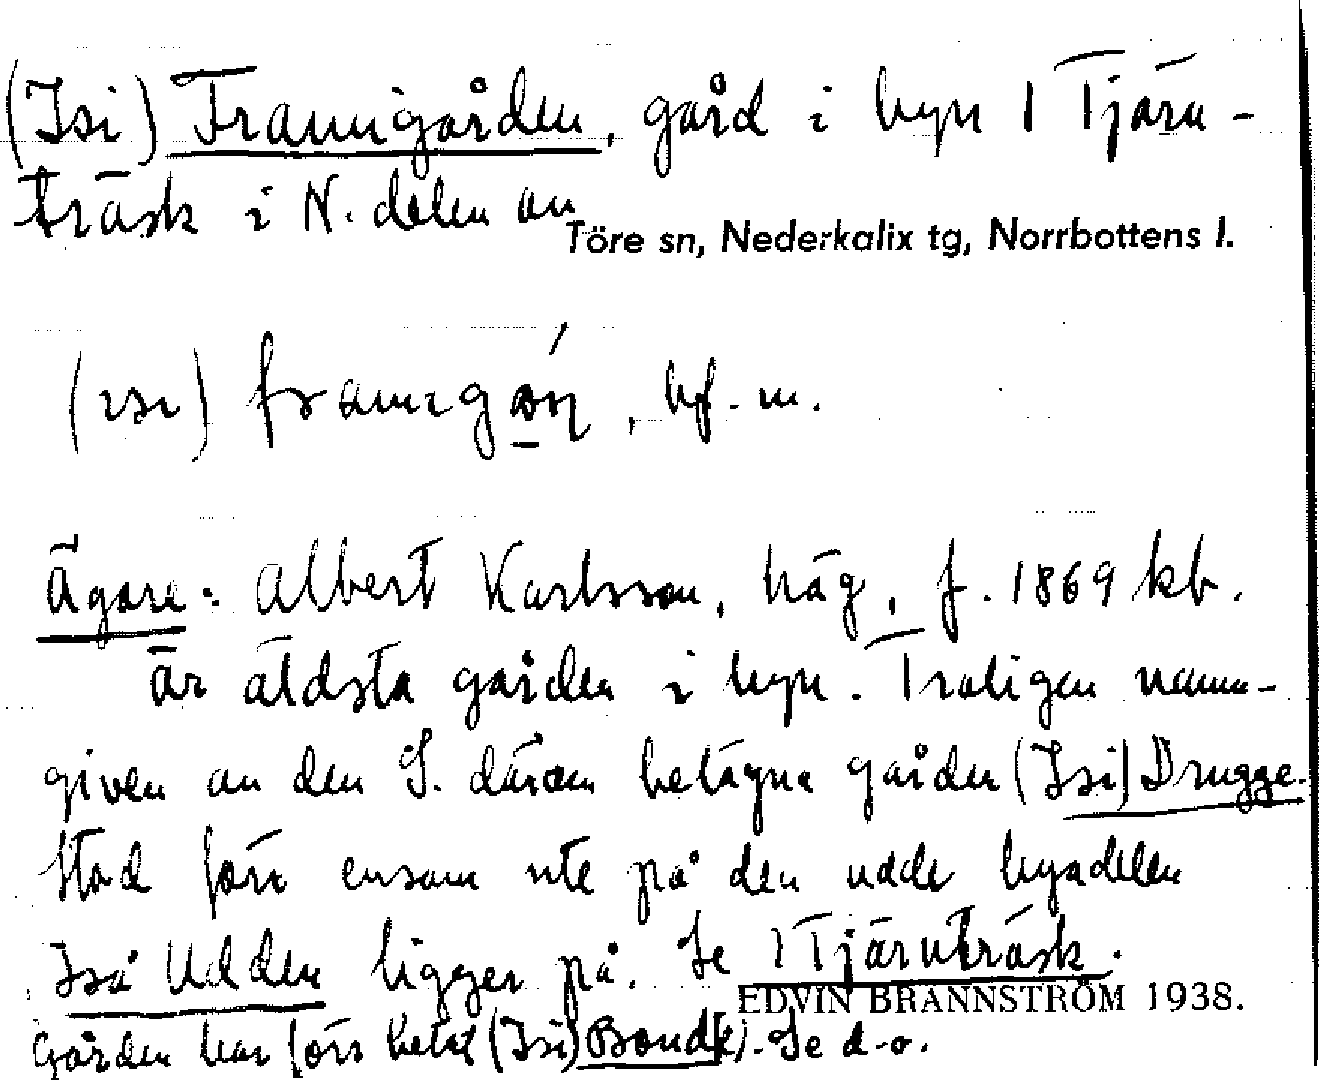 (Isi) Framigården, gård i byn 1 Tjärn-
träsk i N. delen av
Töre sn, Nederkalix tg, Norrbottens l.
(ɪsɪ) , bf. m.
Ägare: Albert Karlsson, häg., f. 1869 kb.
Är äldsta gården i byn. Troligen namn-
given av den S. därom belägna gården (Isi) Drugge.
Stod förr ensam ute på den udde byadelen
Udden ligger på. Se 1 Tjärnträsk.
EDVIN BRÄNNSTRÖM 1938.
Gården har förr hetat (Isi) Bond[e]. Se d.o.